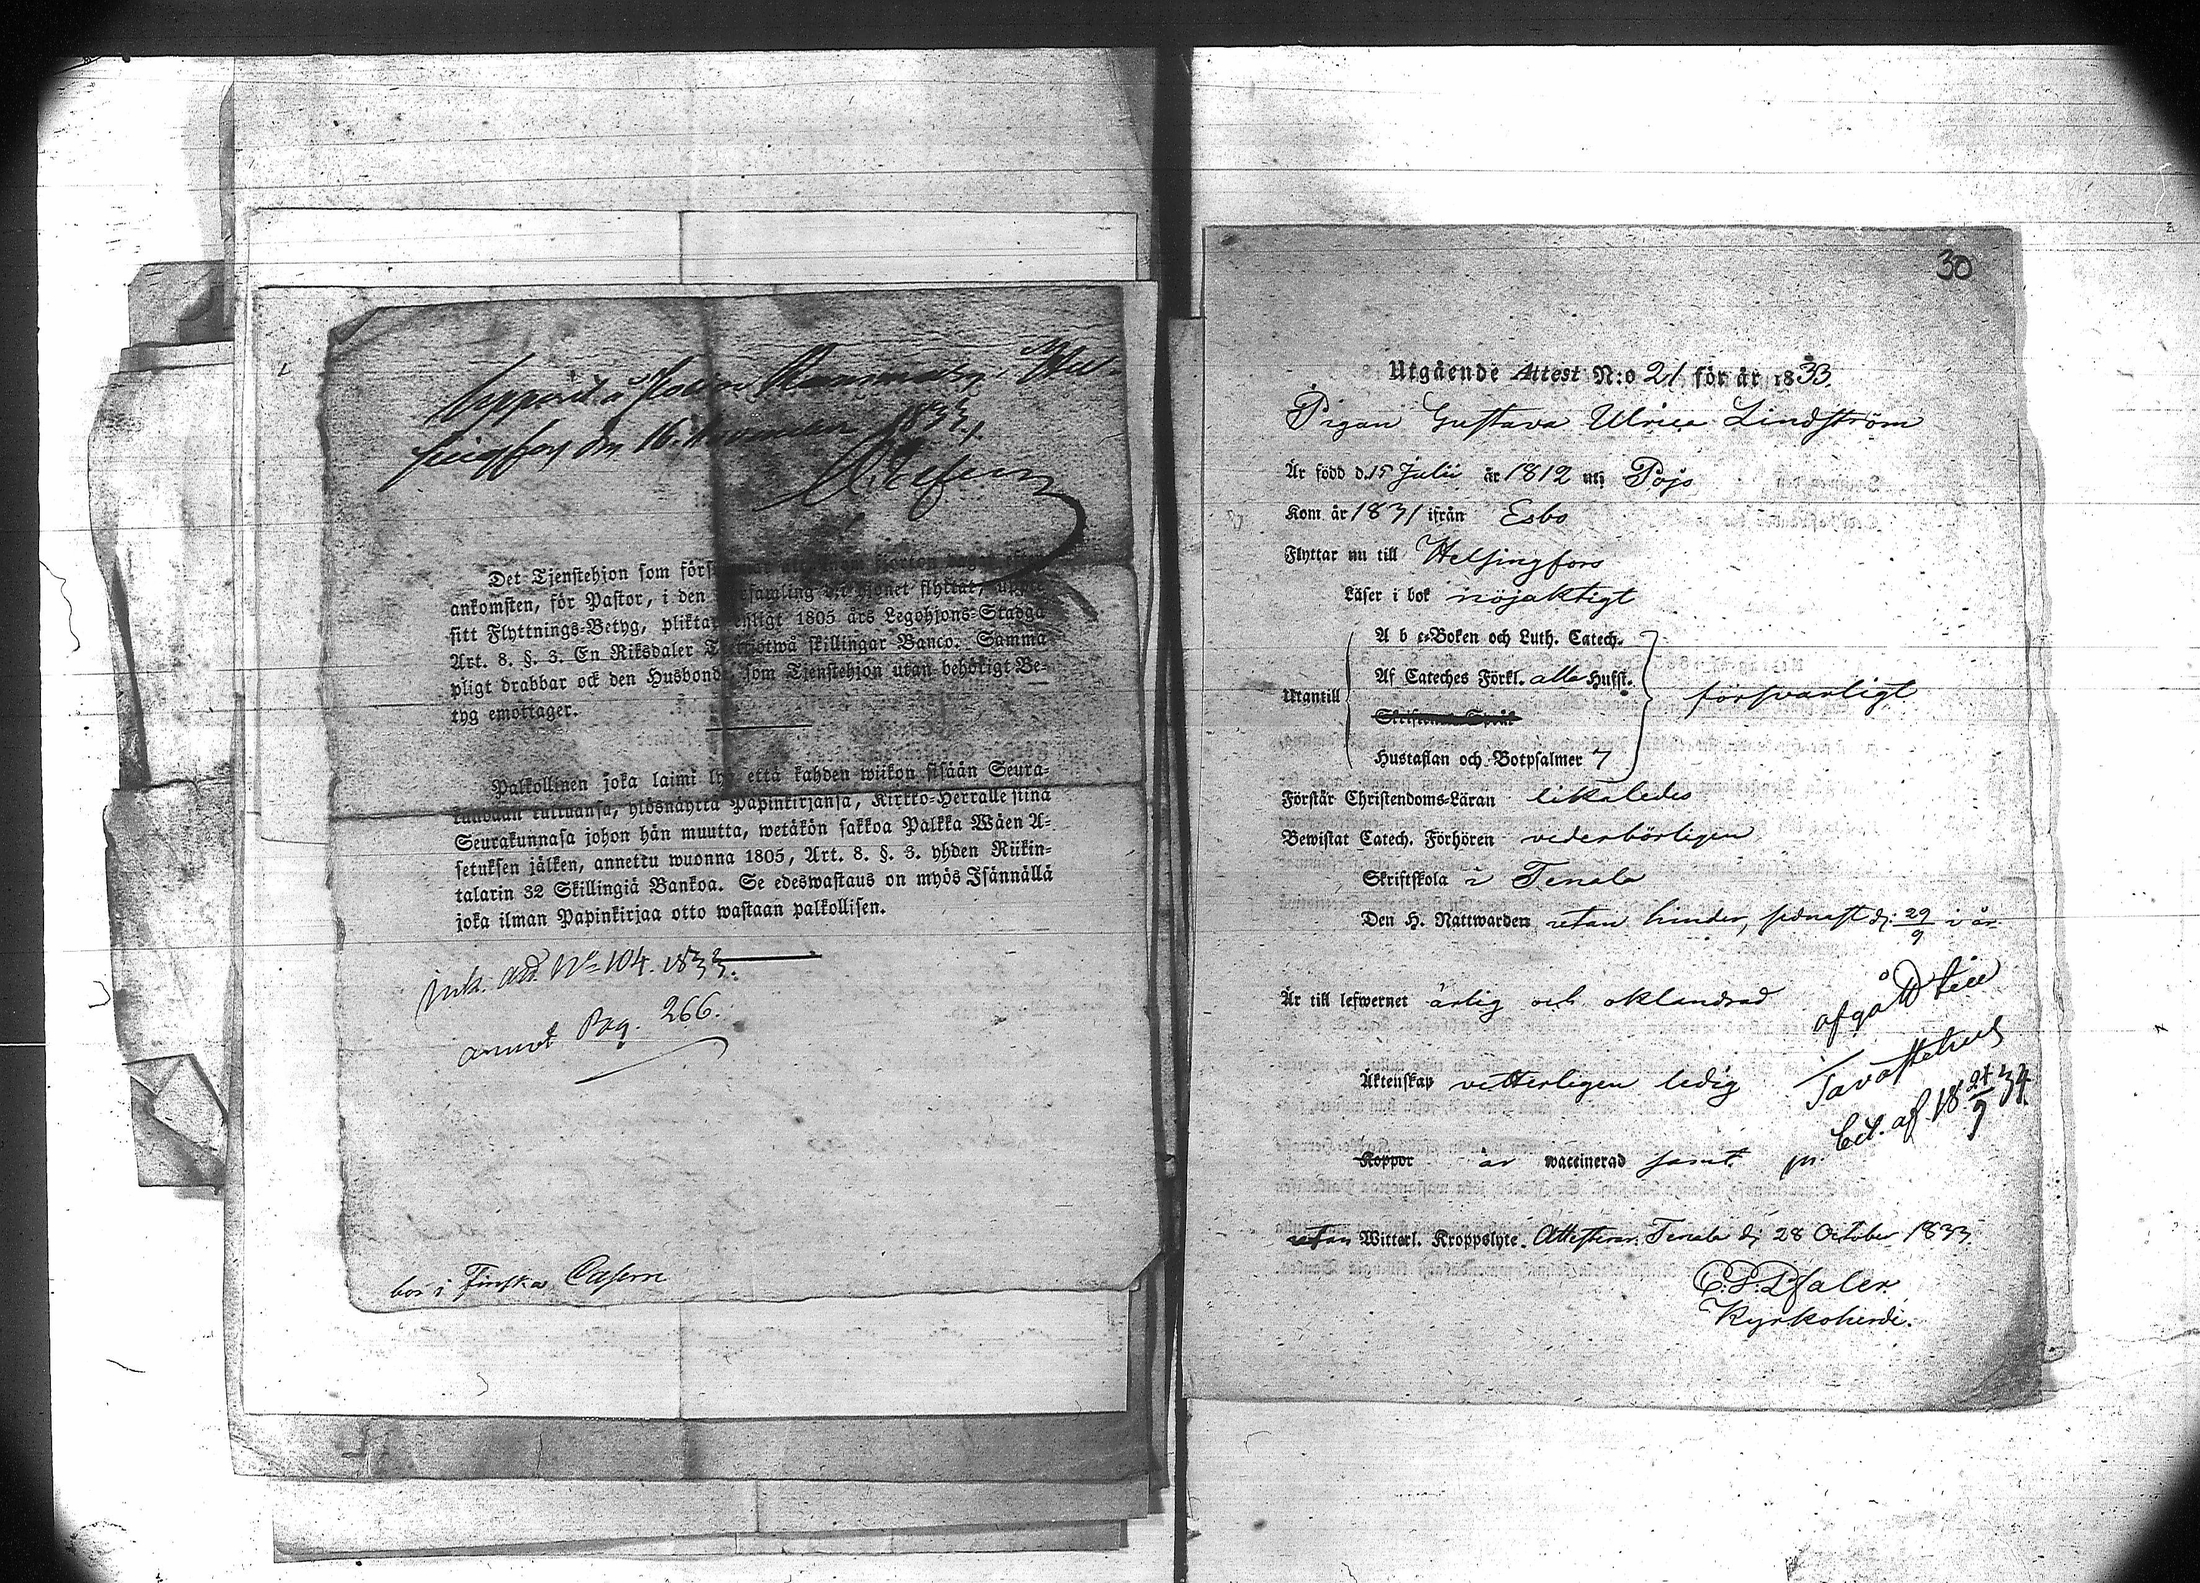 Upvist å Polisen Kammaren i Hel-
singfors den 16. November 1833.
Det Tjenstehjon som förs
ankomsten, för Pastor, i den församling dit hjonet flyttat,
sitt Flyttnings-Betyg, pliktar enligt 1805 års Legohjons-Stadga
Art. 8. §. 3. En Riksdaler Trettiotwå skillingar Banco. Samma
pligt drabbar ock den Husbonde, som Tjenstehjon utan behörigt Be-
tyg emottager.
Palkollinen joka laimi lyö että kahden wiikon sisään Seura-
kundaan tultuansa, ylösnäyttä Papinkirjansa, Kirkko-Herralle siinä
Seurakunnasa johon hän muutta, wetäkön sakkoa Palkka Wäen A-
setuksen jälken, annettu wuonna 1805, Art. 8. §. 3. yhden Riikin-
talarin 32 Skillingiä Bankoa. Se edeswastaus on myös Isännällä
joka ilman Papinkirjaa otto wastaan palkollisen.
Ink. att. No 104. 1833.
annot Pag. 266.
bor i Finska Casern
30
Utgående Attest N:o 21 för år 1833.
Pigan Gustava Ulrica Lindström
Är född d. 15 Julii år 1812 uti Pojo
Kom år 1831 ifrån Esbo
Flyttar nu till Helsingfors
Läser i bok nöjaktigt
A b c-Boken och Luth. Catech.
Af Cateches Förkl. alla Hufst.
Utantill försvarligt
Skristenes Språk
Hustaflan och Botpsalmer 7
Förstår Christendoms-Läran likaledes
Bewistat Catech. Förhören vederbörligen
Skriftskola i Tenala
Den H. Nattwarden utan hinder, sednast d. 29/9 i år
Är till lefwernet ärlig och oklandrad
afgått till
Tavastehus
Äktenskap vetterligen ledig
bet. af 18 24/9 34.
Koppor är waccinerad samt
utan Witterl. Kroppslyte. Attesteras. Tenala d. 28 October 1833
Kyrkoherde.